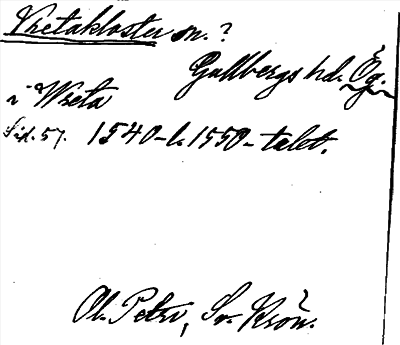 Vretakloster sn.?
Gullbergs hd. Ög.
i Wreta
Sid. 57. 1540-t. 1550-talet.
Ol. Petri, Sv. Krön.